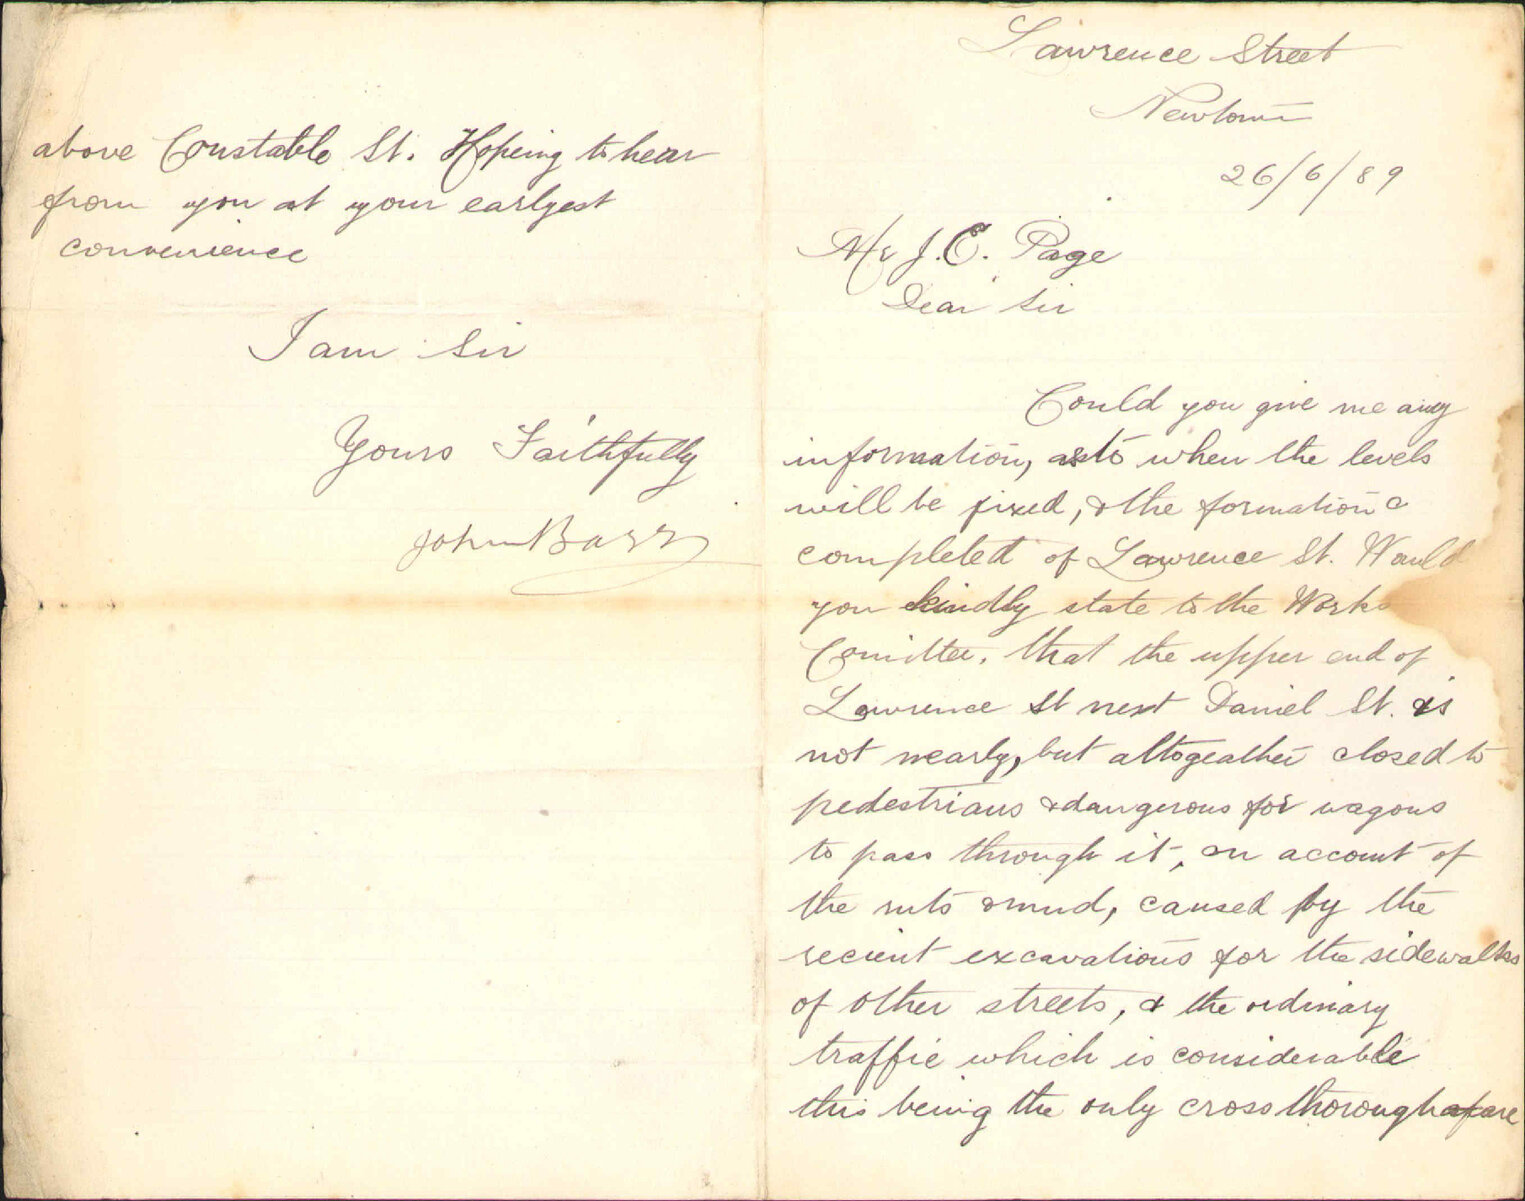 Lawrence Street
Newtown
26/6/89
Mr J. C. Page
Dear Sir
Could you give me any
information, as to when the levels
will be fixed, & the formation
completed of Lawrence St. Would
you kindly state to the Works
Comittee. that the upper end of
Lawrence St next Daniel St. is
not nearly, but altogeather closed to
pedestrians & dangerous for wagons
to pass through it, on account of
the ruts & mud, caused by the
recient excavations for the sidewalks
of other streets, & the ordinary
traffic which is considerable
this being the only cross thoroughafare
above Constable St. Hoping to hear
from you at your earlyest
convenience
I am Sir
Yours Faithfully
John Barr